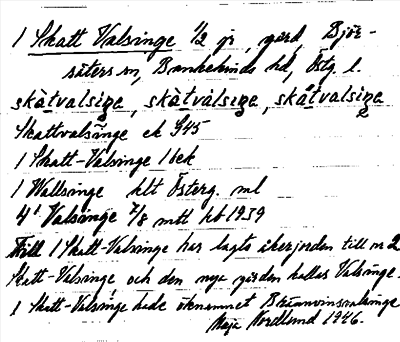 1 Skatt Valsinge 1/2 jr, gård, Björ-
säters sn, Bankekinds hd, Östg. l.
skàtvalsiŋe, skàtvàlsiŋe, skåtvalsiŋe
Skattvalsinge ek G45
1 Skatt-Valsinge 1 bek
1 Wallsinge hlt Österg. ml
4¹ Valsinge 7/8 mtl hb 1939
Till 1 Skatt-Valsinge har lagts åkerjorden till nr 2
Skatt-Valsinge och den nya gården kallas Valsinge.
1 Skatt-Valsinge hade öknamnet Brännvinsvalsinge
Maja Nordlund 1946.